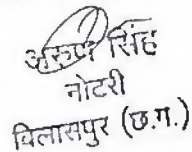 अरूण सिंह
नोटरी
विलासपुर (छ.ग.)